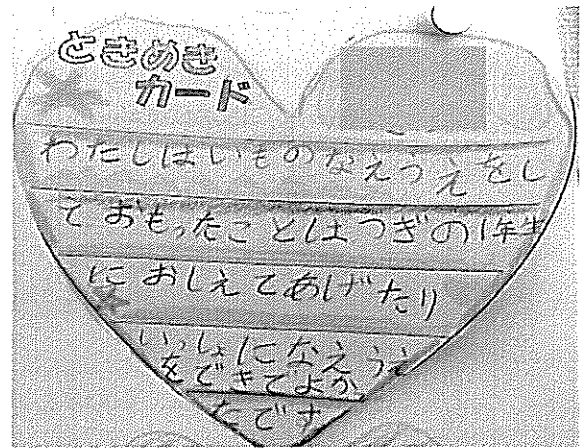 ときめき
カード
わたしはいものなえうえをし
ておもったことはつぎの1年生
におしえてあげたり
いっしょになえうえ
をできてよか
たです